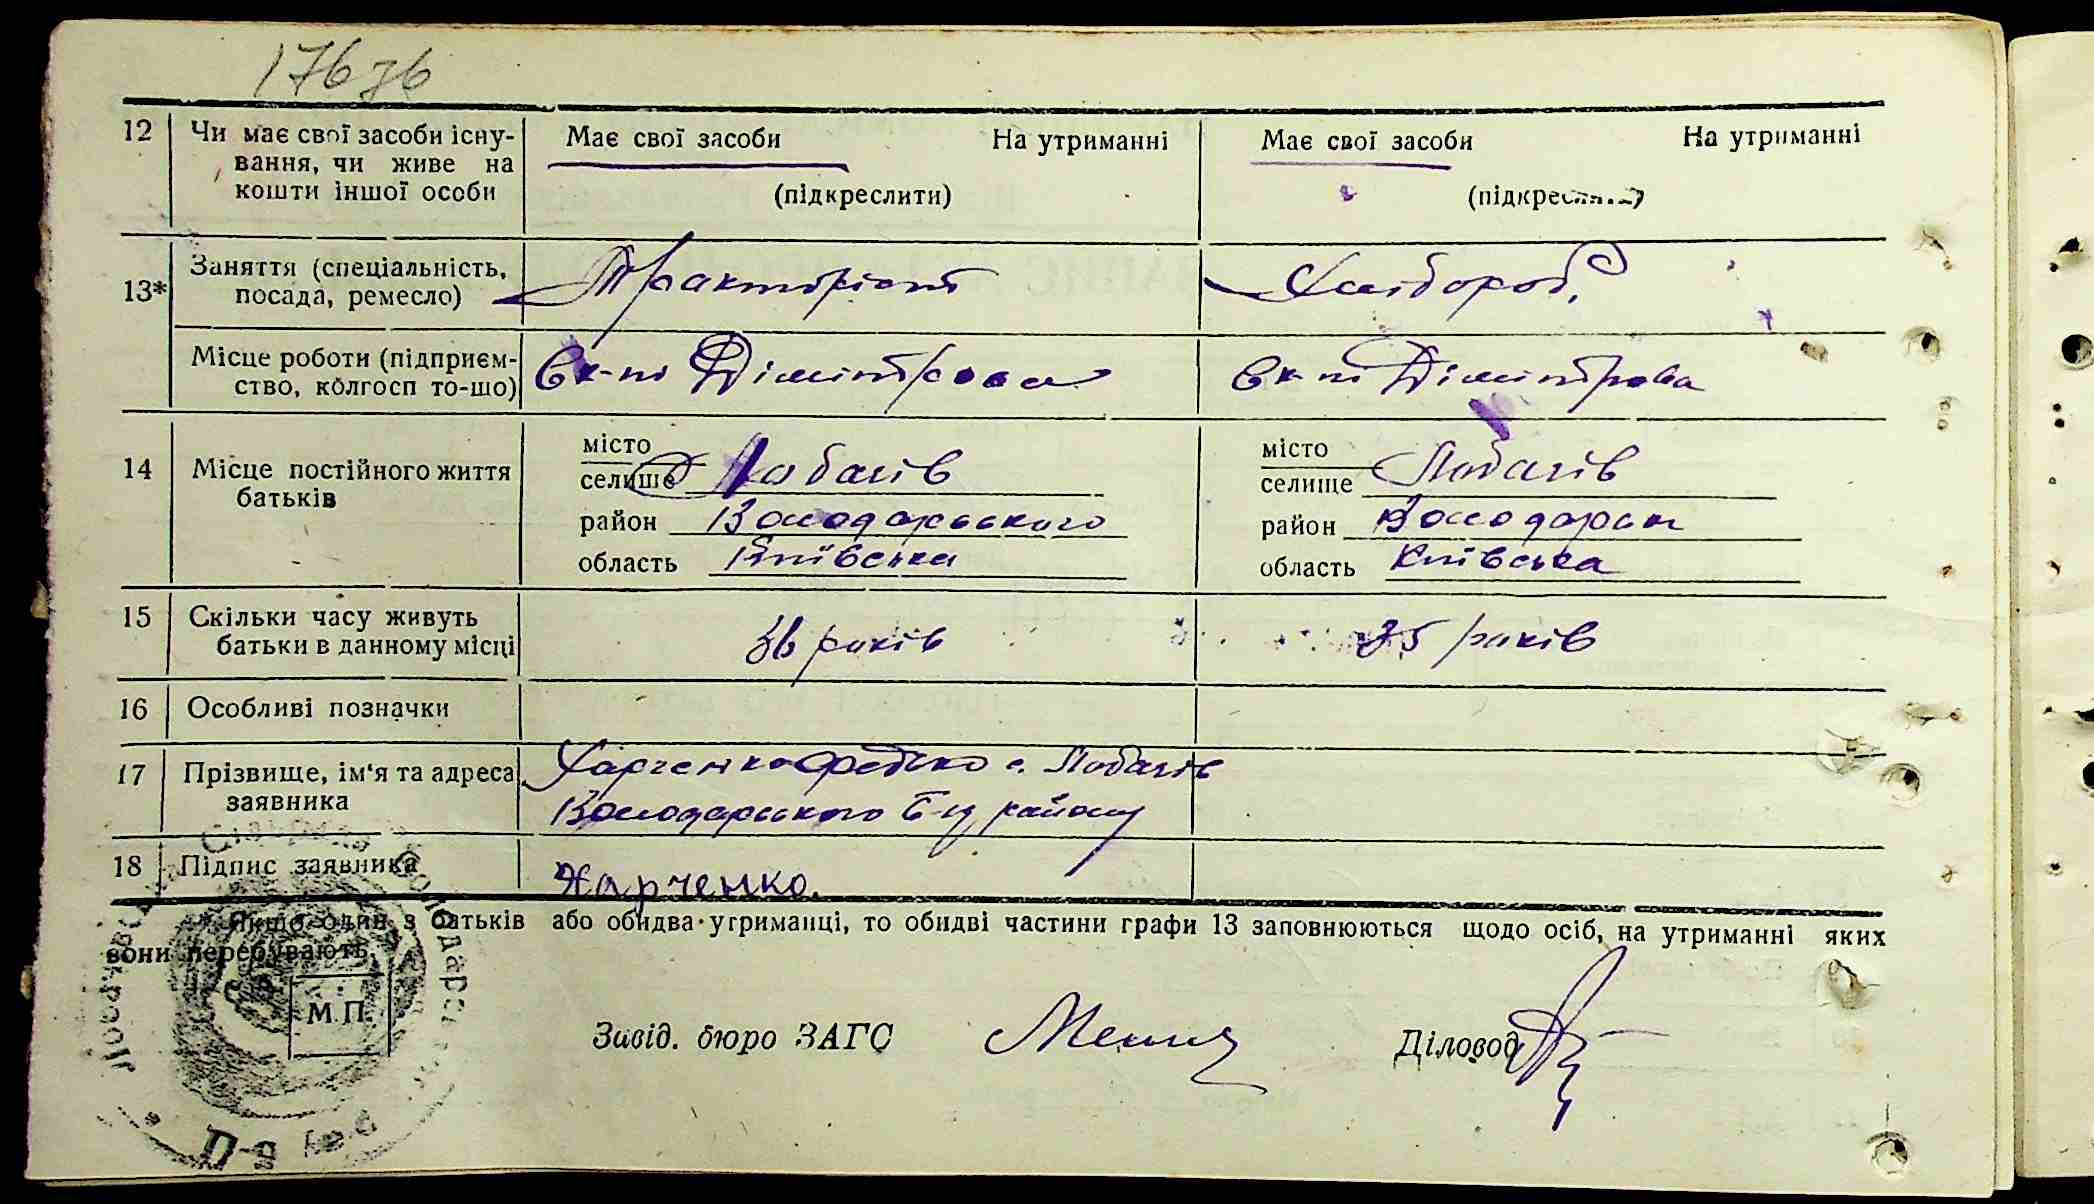 17676
12 Чи має свої засоби існу- Має свої засоби На утриманні Має свої засоби На утриманні
вання, чи живе на
кошти іншої особи (підкреслити) (підкреслити)
13* Заняття (спеціальність, Тракторіст Хлібороб
посада, ремесло)
Місце роботи (підприєм- Ск-п Дімітрова Ск-п Дімітрова
ство, колгосп то-що)
14 Місце постійного життя місто місто
батьків селище Лобачів селище Лобачів
район Володарського район Володарськ
область Київська область Київська
15 Скільки часу живуть 36 років 35 років
батьки в данному місці
16 Особливі позначки
17 Прізвище, ім'я та адреса Харченко Федько с. Лобачів
заявника Володарського району
18 Підпис заявника Харченко.
Якщо один з батьків або обидва утриманці, то обидві частини графи 13 заповнюються щодо осіб, на утриманні яких
вони перебувають.
М.П.
Завід. бюро ЗАГС Діловод